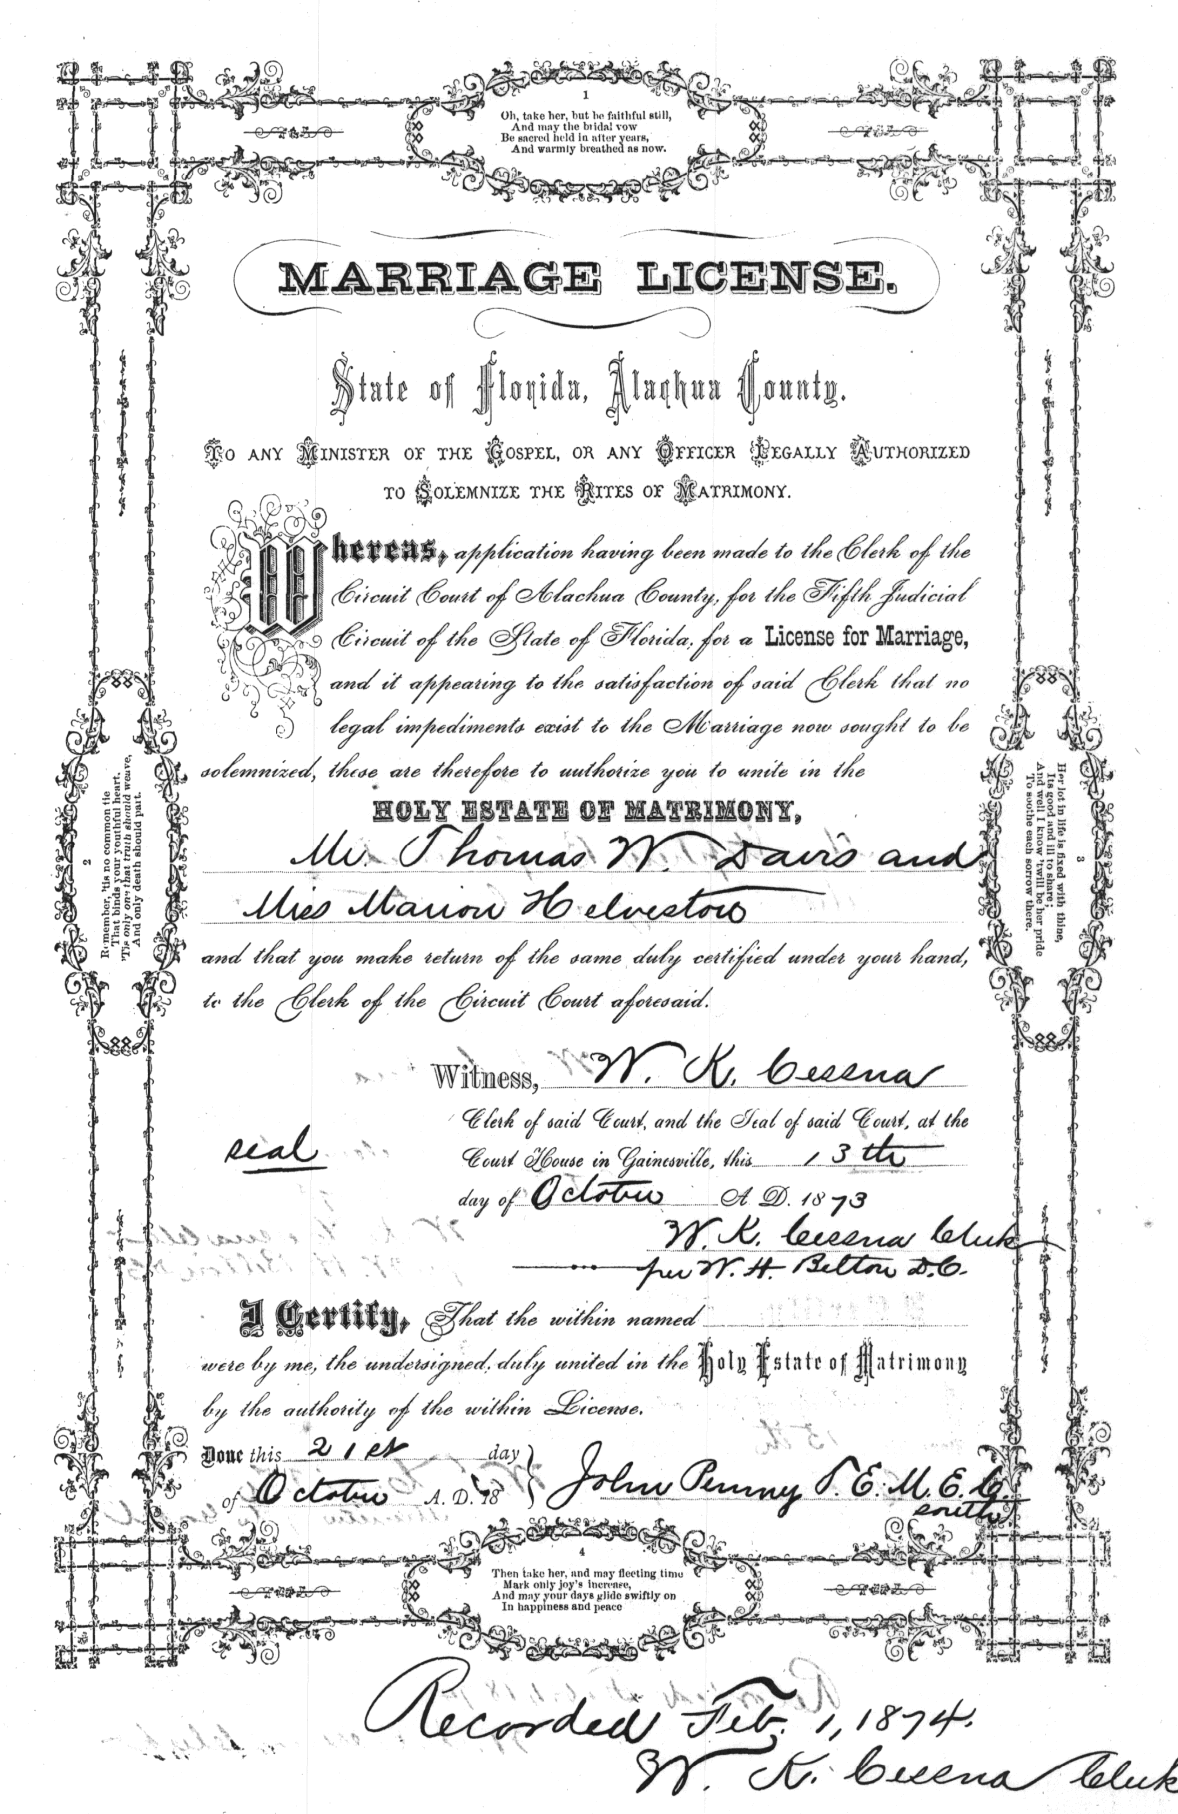 1
Oh, take her, but be faithful still,
And may the bridal vow
Be sacred held in after years,
And warmly breathed as now.
MARRIAGE LICENSE.
State of Florida, Alachua County.
TO ANY MINISTER OF THE GOSPEL, OR ANY OFFICER LEGALLY AUTHORIZED
TO SOLEMNIZE THE RITES OF MATRIMONY.
Whereas, application having been made to the Clerk of the
Circuit Court of Alachua County, for the Fifth Judicial
Circuit of the State of Florida, for a License for Marriage,
and it appearing to the satisfaction of said Clerk that no
legal impediments exist to the Marriage now sought to be
solemnized, these are therefore to authorize you to unite in the
HOLY ESTATE OF MATRIMONY,
Mr. Thomas W. Davis and
Miss Marion Helveston
and that you make return of the same duly certified under your hand,
to the Clerk of the Circuit Court aforesaid.
Witness, W. K. Cessna
Clerk of said Court, and the Seal of said Court, at the
seal
Court House in Gainesville, this 13th
day of October A. D. 1873
W. K. Cessna Clerk
per W. H. Belton D.C.
I Certify, That the within named
were by me, the undersigned, duly united in the Holy Estate of Matrimony
by the authority of the within License.
Done this 21st day
of October A. D. 18
John Penny P. E. M. E. C.
south
2
Remember, 'tis no common tie
That binds your youthful heart,
'Tis only one that truth should weave,
And only death should part.
3
Her lot in life is fixed with thine,
Its good and ill to share;
And well I know 'twill be her pride
To soothe each sorrow there.
4
Then take her, and may fleeting time
Mark only joy's increase,
And may your days glide swiftly on
In happiness and peace
Recorded Feb. 1, 1874.
W. K. Cessna Clerk